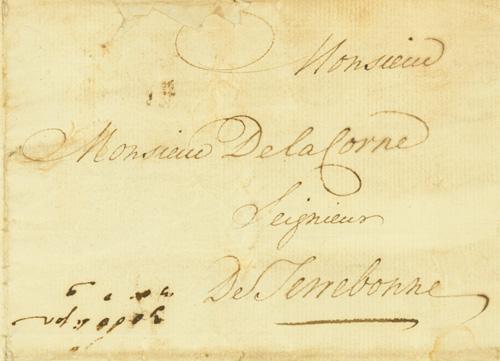 Monsieur
Monsieur De la Corne
Seignieur
De Terrebonne